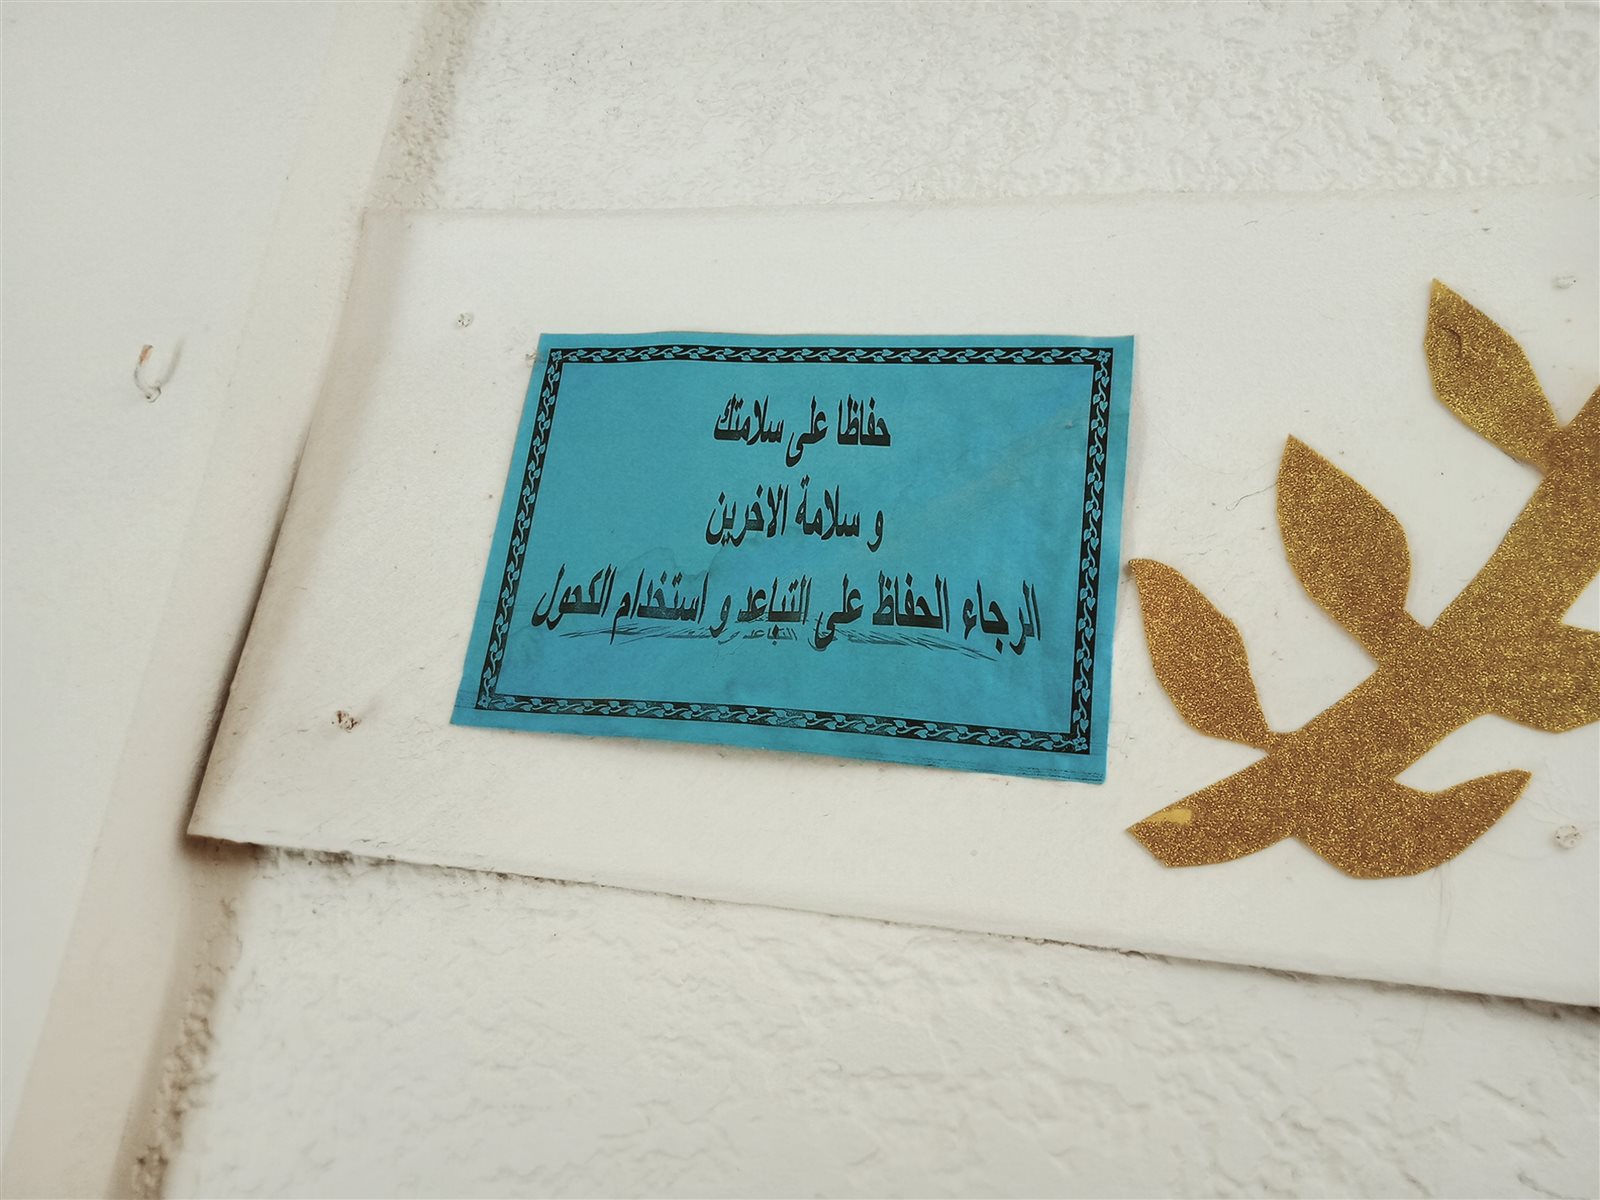 حفاظا على سلامتك
و سلامة الاخرين
الرجاء الحفاظ على التباعد و استخدام الكحول